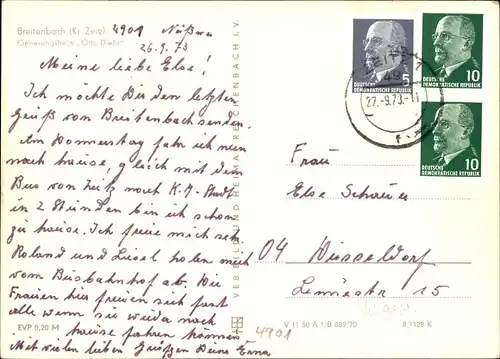 Breitenbach (Kr. Zeitz)
Genesungsheim „Otto Diehl“
4901
26.9.73
Meine liebe Else!
Ich möchte Dir den letzten
Gruß von Breitenbach senden.
Am Donnerstag fahr ich nun
nach hause, gleich mit dem
Bus von Zeitz nach K.M.Stadt
in 2 Stunden bin ich schon
zu hause. Ich freue mich sehr
Roland und Liesel holen mich
vom Busbahnhof ab. Die
Frauen hier freuen sich fast
alle wenn sie wieder nach
hause fahren können
Mit vielen lieben Grüßen Deine Erna
EVP 0,20 M
VERLAG UND HEIMAT REICHENBACH I. V.
4901
DEUTSCHE
DEMOKRATISCHE REPUBLIK
5
DEUTSCHE
DEMOKRATISCHE REPUBLIK
10
DEUTSCHE
DEMOKRATISCHE REPUBLIK
10
ZEITZ 1
49
27.-9.73.-11
f
Frau
Else
04 Düsseldorf
15
V 11 50 A 1/B 839/70
8/1128 K